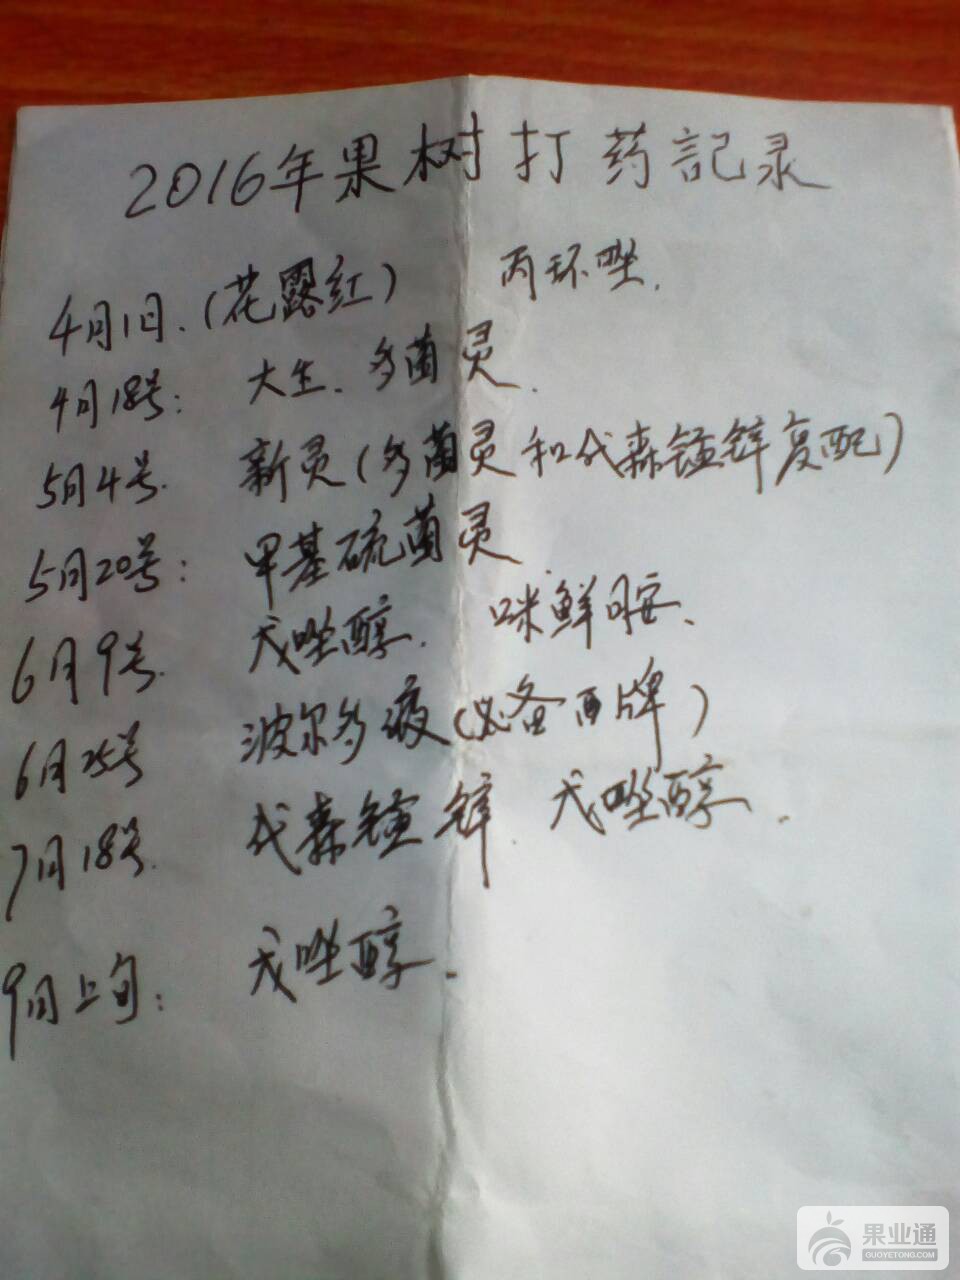 2016年果树打药記录
4月1日.(花露红) 丙环唑.
4月18号: 大生、多菌灵.
5月4号. 新灵(多菌灵和代森锰锌复配)
5月20号: 甲基硫菌灵
6月9号. 戊唑醇. 咪鲜胺、
6月25号 波尔多液(必备西牌)
7月18号. 代森锰锌. 戊唑醇.
9月上旬: 戊唑醇.
果业通
GUOYETONG.COM